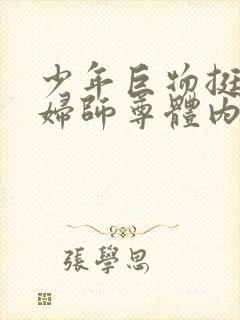 少年巨物挺
婦師尊體內
張學思